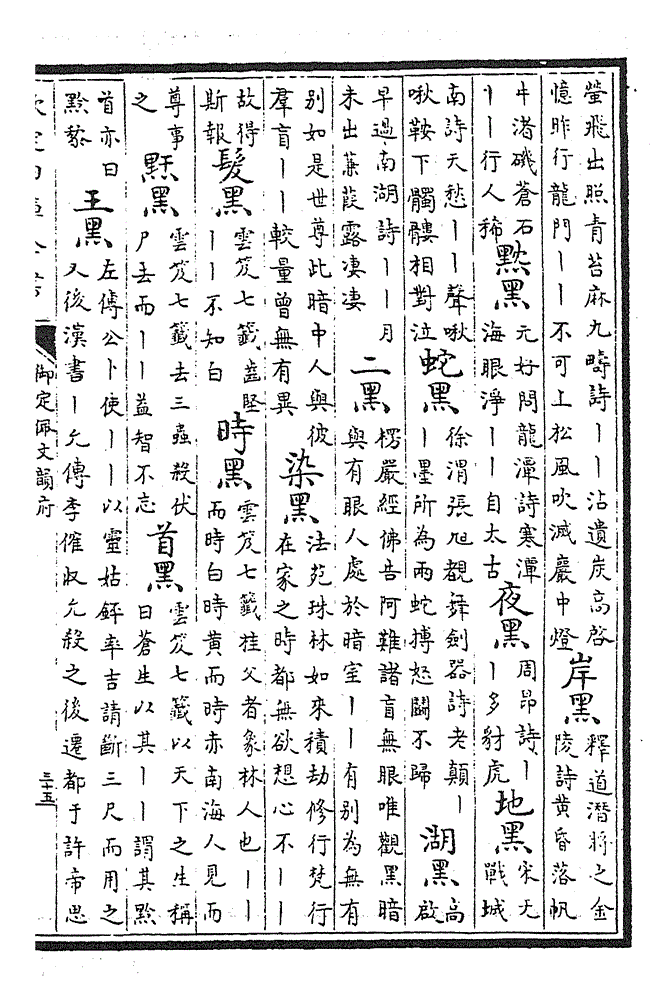 螢飛出照青苔麻九疇詩丨丨沾遺炭高啓
憶昨行龍門丨丨不可上松風吹滅巖中燈
岸黑
釋道潛將之金
陵詩黄昏落帆
牛渚磯蒼石
丨丨行人稀
黝黑
元好問龍潭詩寒潭
海眼淨丨丨自太古
夜黑
周昂詩丨
丨多豺虎
地黑
宋无
戰城
南詩天愁丨丨聲啾
啾鞍下髑髏相對泣
蛇黑
徐渭張旭觀舞劍器詩老顛丨
丨墨所為兩蛇搏怒鬬不歸
湖黑
高
啟
早過南湖詩丨丨月
未出蒹葭露凄凄
二黑
楞嚴經佛告阿難諸盲無眼唯觀黑暗
與有眼人處於暗室丨丨有别為無有
别如是世尊此暗中人與彼
羣盲丨丨較量曾無有異
染黑
法苑珠林如來積劫修行梵行
在家之時都無欲想心不丨丨
故得
斯報
髮黑
雲笈七籤齒堅
丨丨不知白
時黑
雲笈七籤桂父者象林人也丨丨
而時白時黄而時赤南海人見而
尊事
之
黑
雲笈七籤去三蟲殺伏
尸丢而丨丨益智不忘
首黑
雲笈七籤以天下之生稱
曰蒼生以其丨丨謂其黔
首亦曰
黔黎
王黑
左傳公卜使丨丨以靈姑銔率吉請斷三尺而用之
又後漢書丨允傳李傕收允殺之後遷都于許帝思
欽定四庫全書
御定佩文韻府
三十五